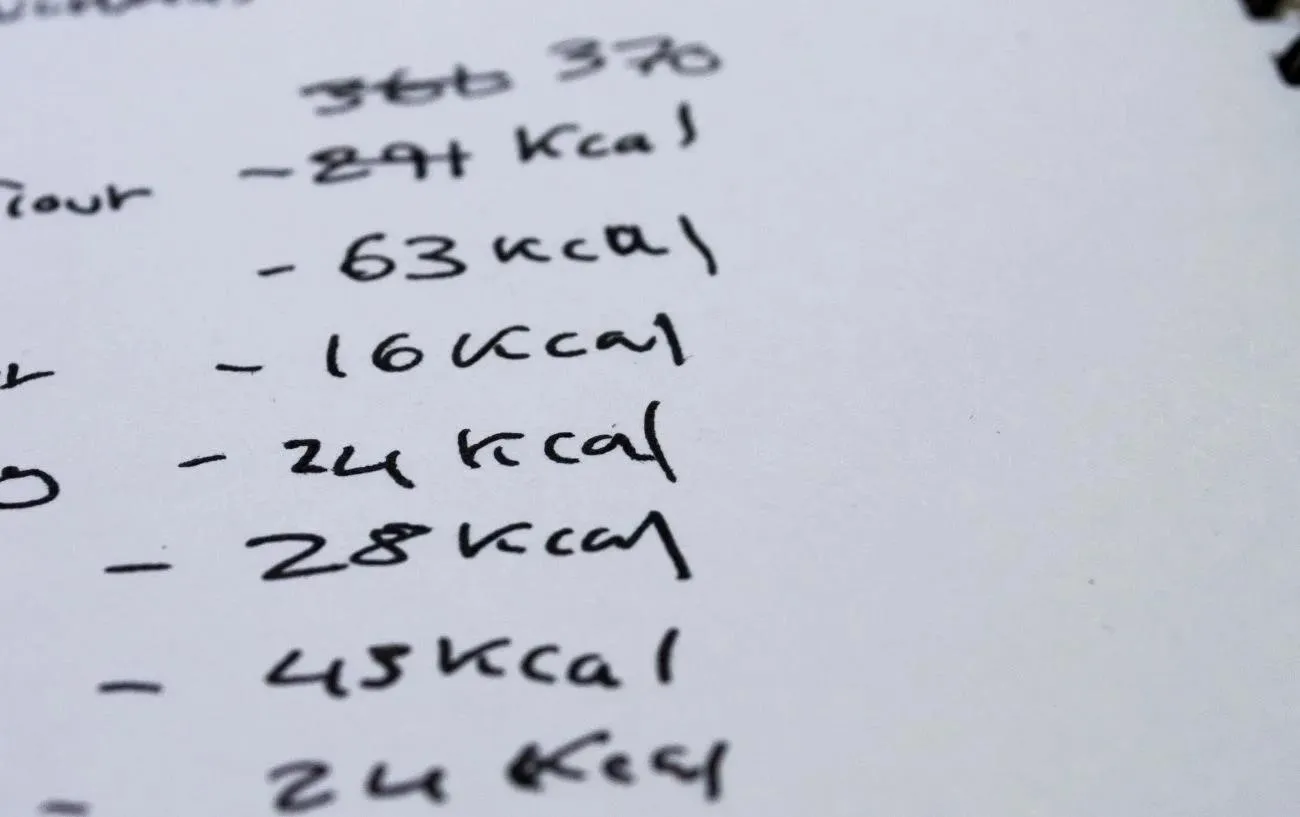 366 370
- 291 Kcal
- 63 Kcal
- 16 Kcal
- 24 Kcal
- 28 Kcal
- 45 Kcal
- 24 Kcal